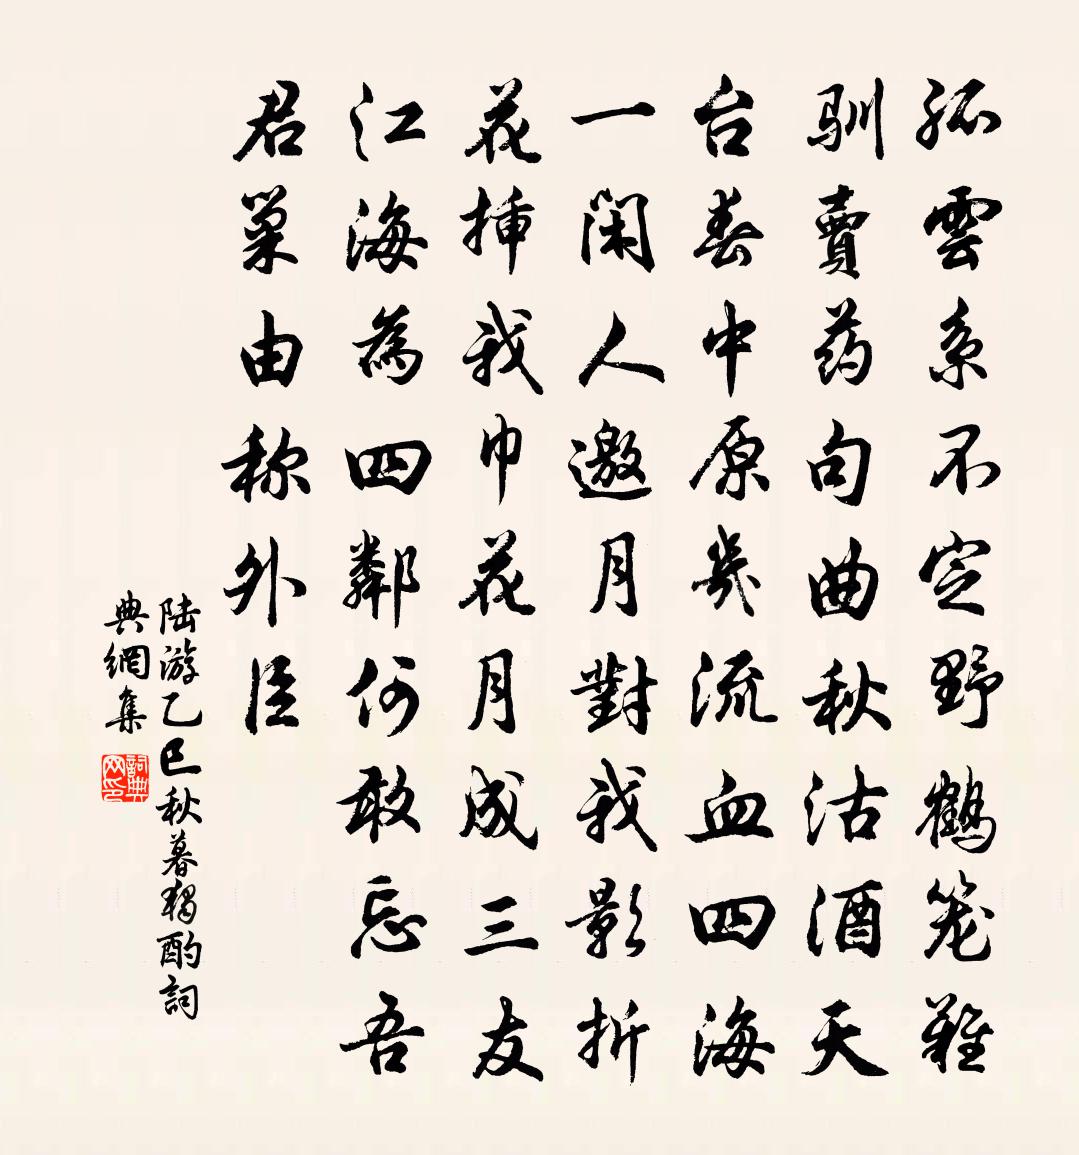 孤雲系不定野鶴笼難
馴賣药句曲秋沽酒天
台春中原幾流血四海
一闲人邀月對我影折
花挿我巾花月成三友
江海為四鄰何敢忘吾
君巢由称外臣
陆游乙巳秋暮獨酌詞
典網集
詞典
网印